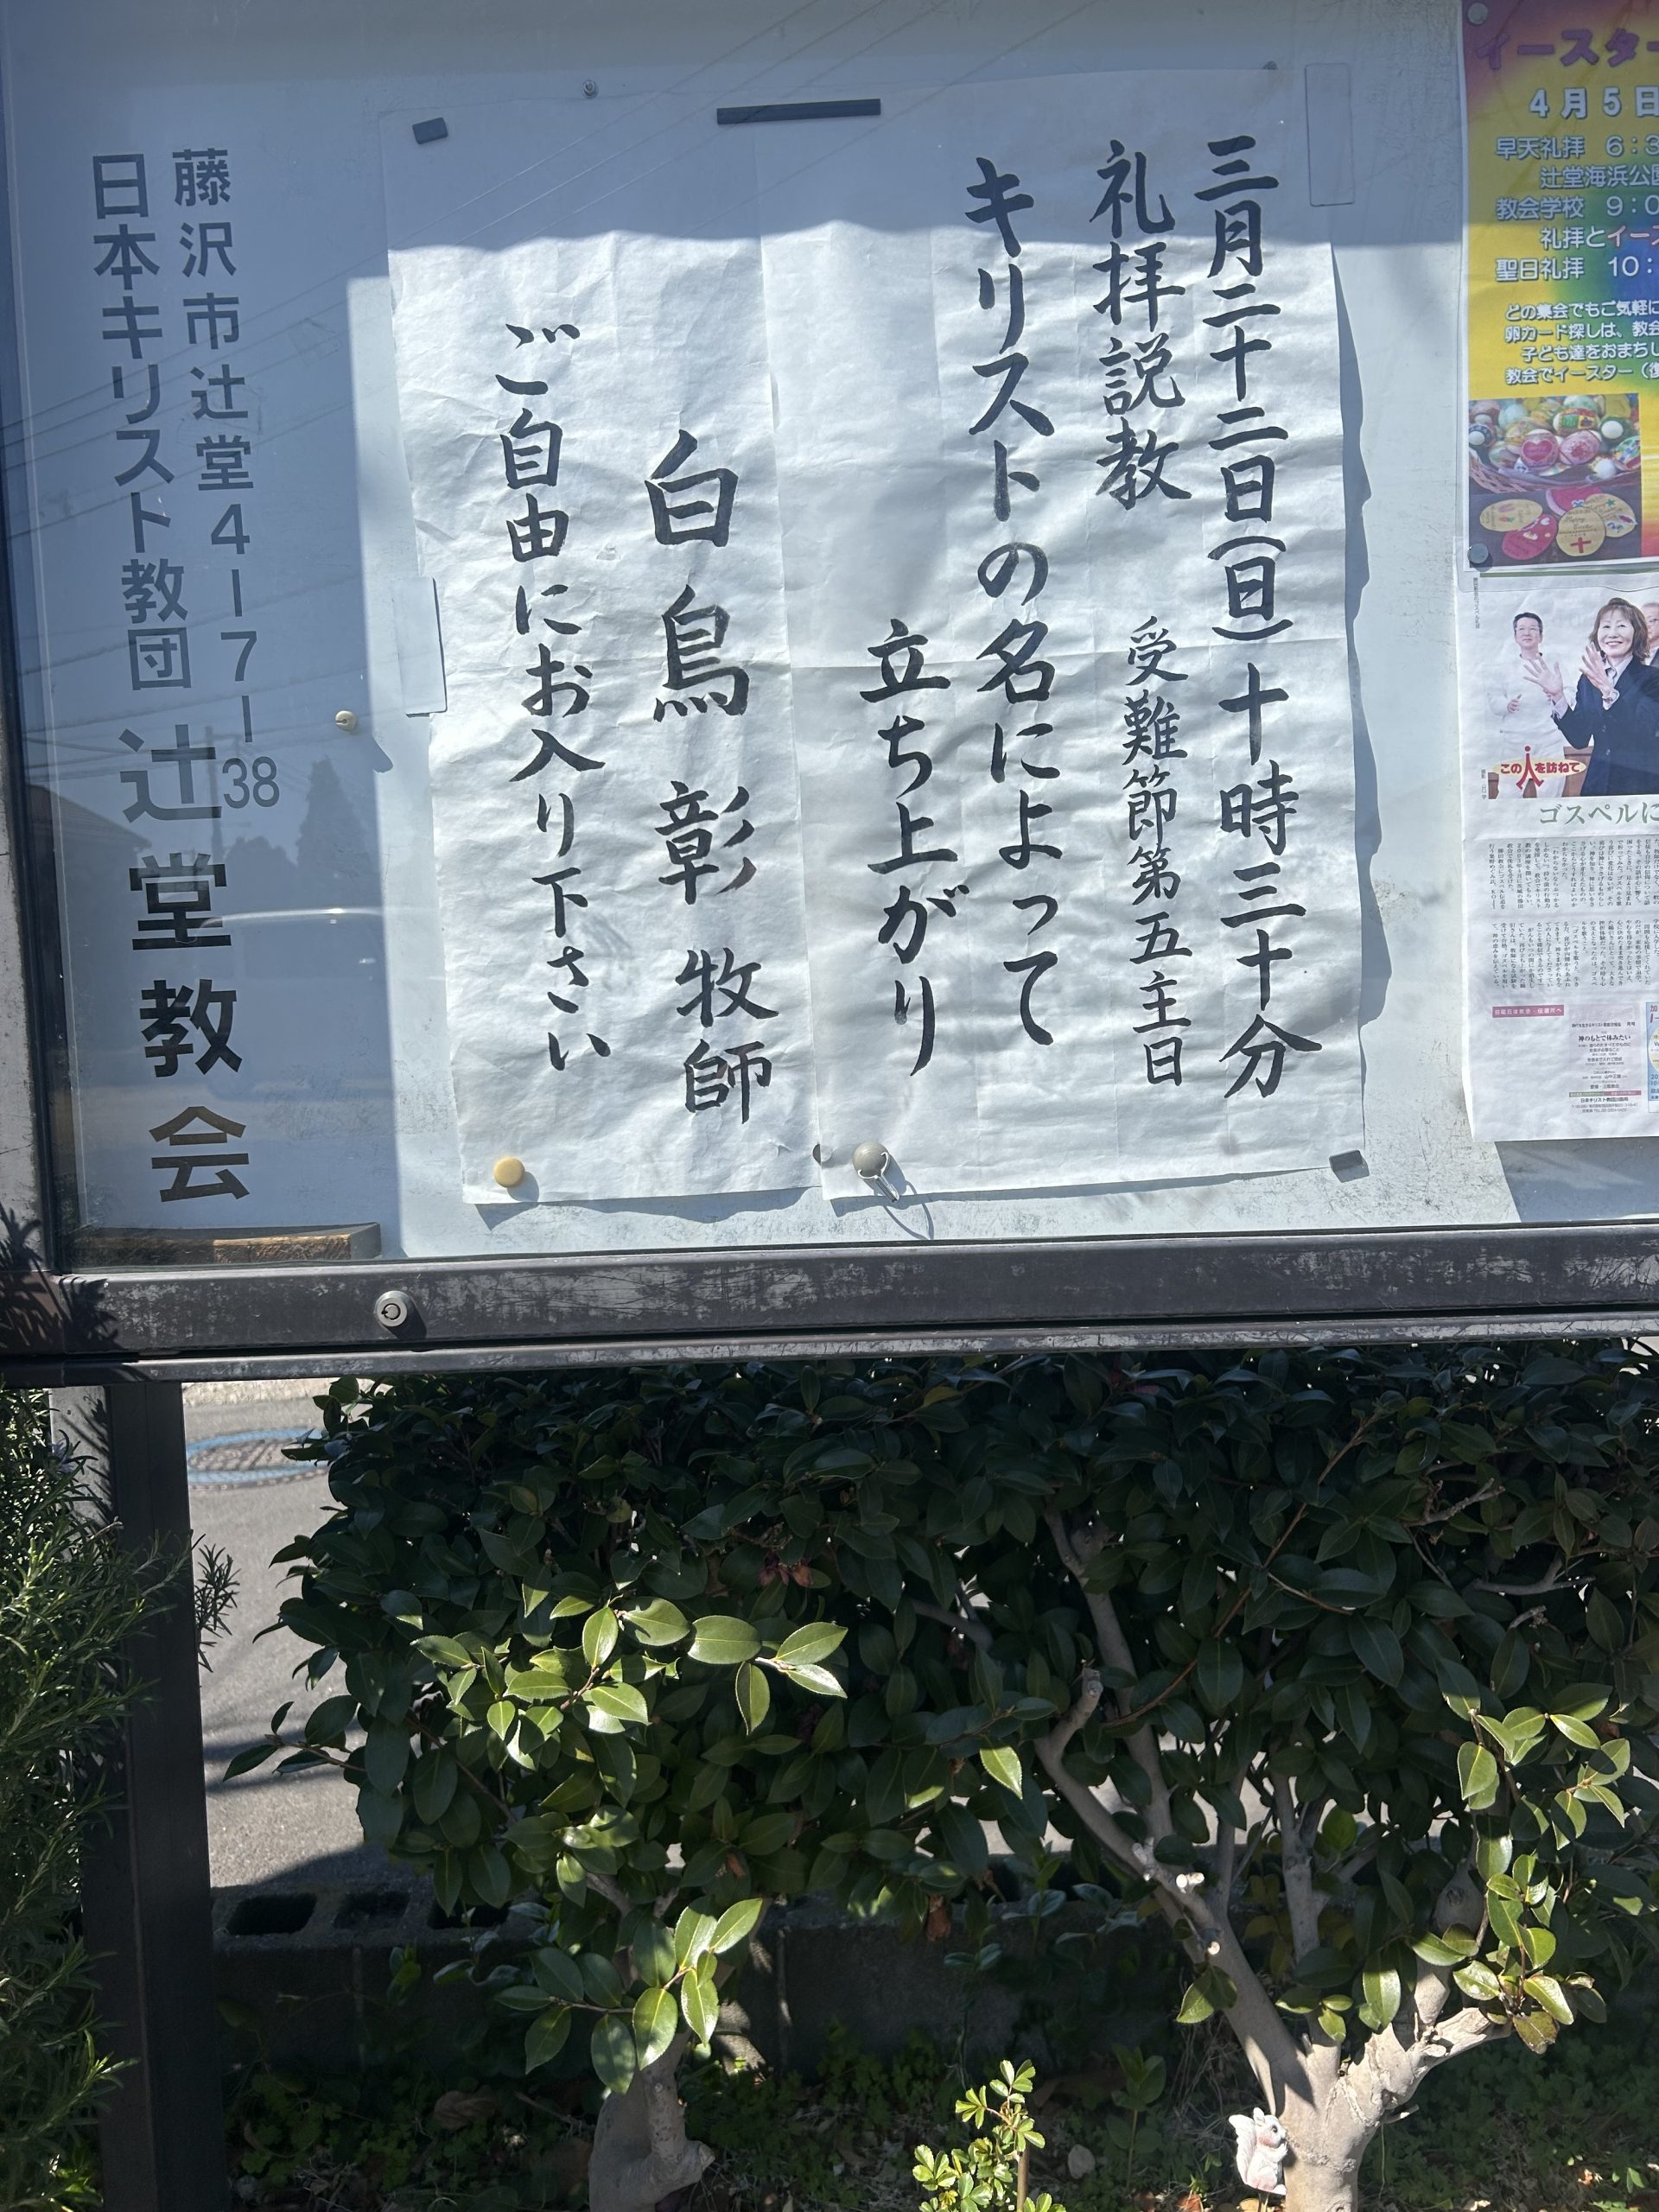 三月二十二日(日)十時三十分
礼拝説教 受難節第五主日
キリストの名によって
立ち上がり
白鳥 彰 牧師
ご自由にお入り下さい
藤沢市辻堂4-7-38
日本キリスト教団 辻堂教会
イースター
4月5日
早天礼拝 6:3
辻堂海浜公園
教会学校 9:0
礼拝とイース
聖日礼拝 10:
どの集会でもご気軽に
卵カード探しは、教会
子ども達をおまちし
教会でイースター(復
この人を訪ねて
ゴスペルに
神のもとで休みたい